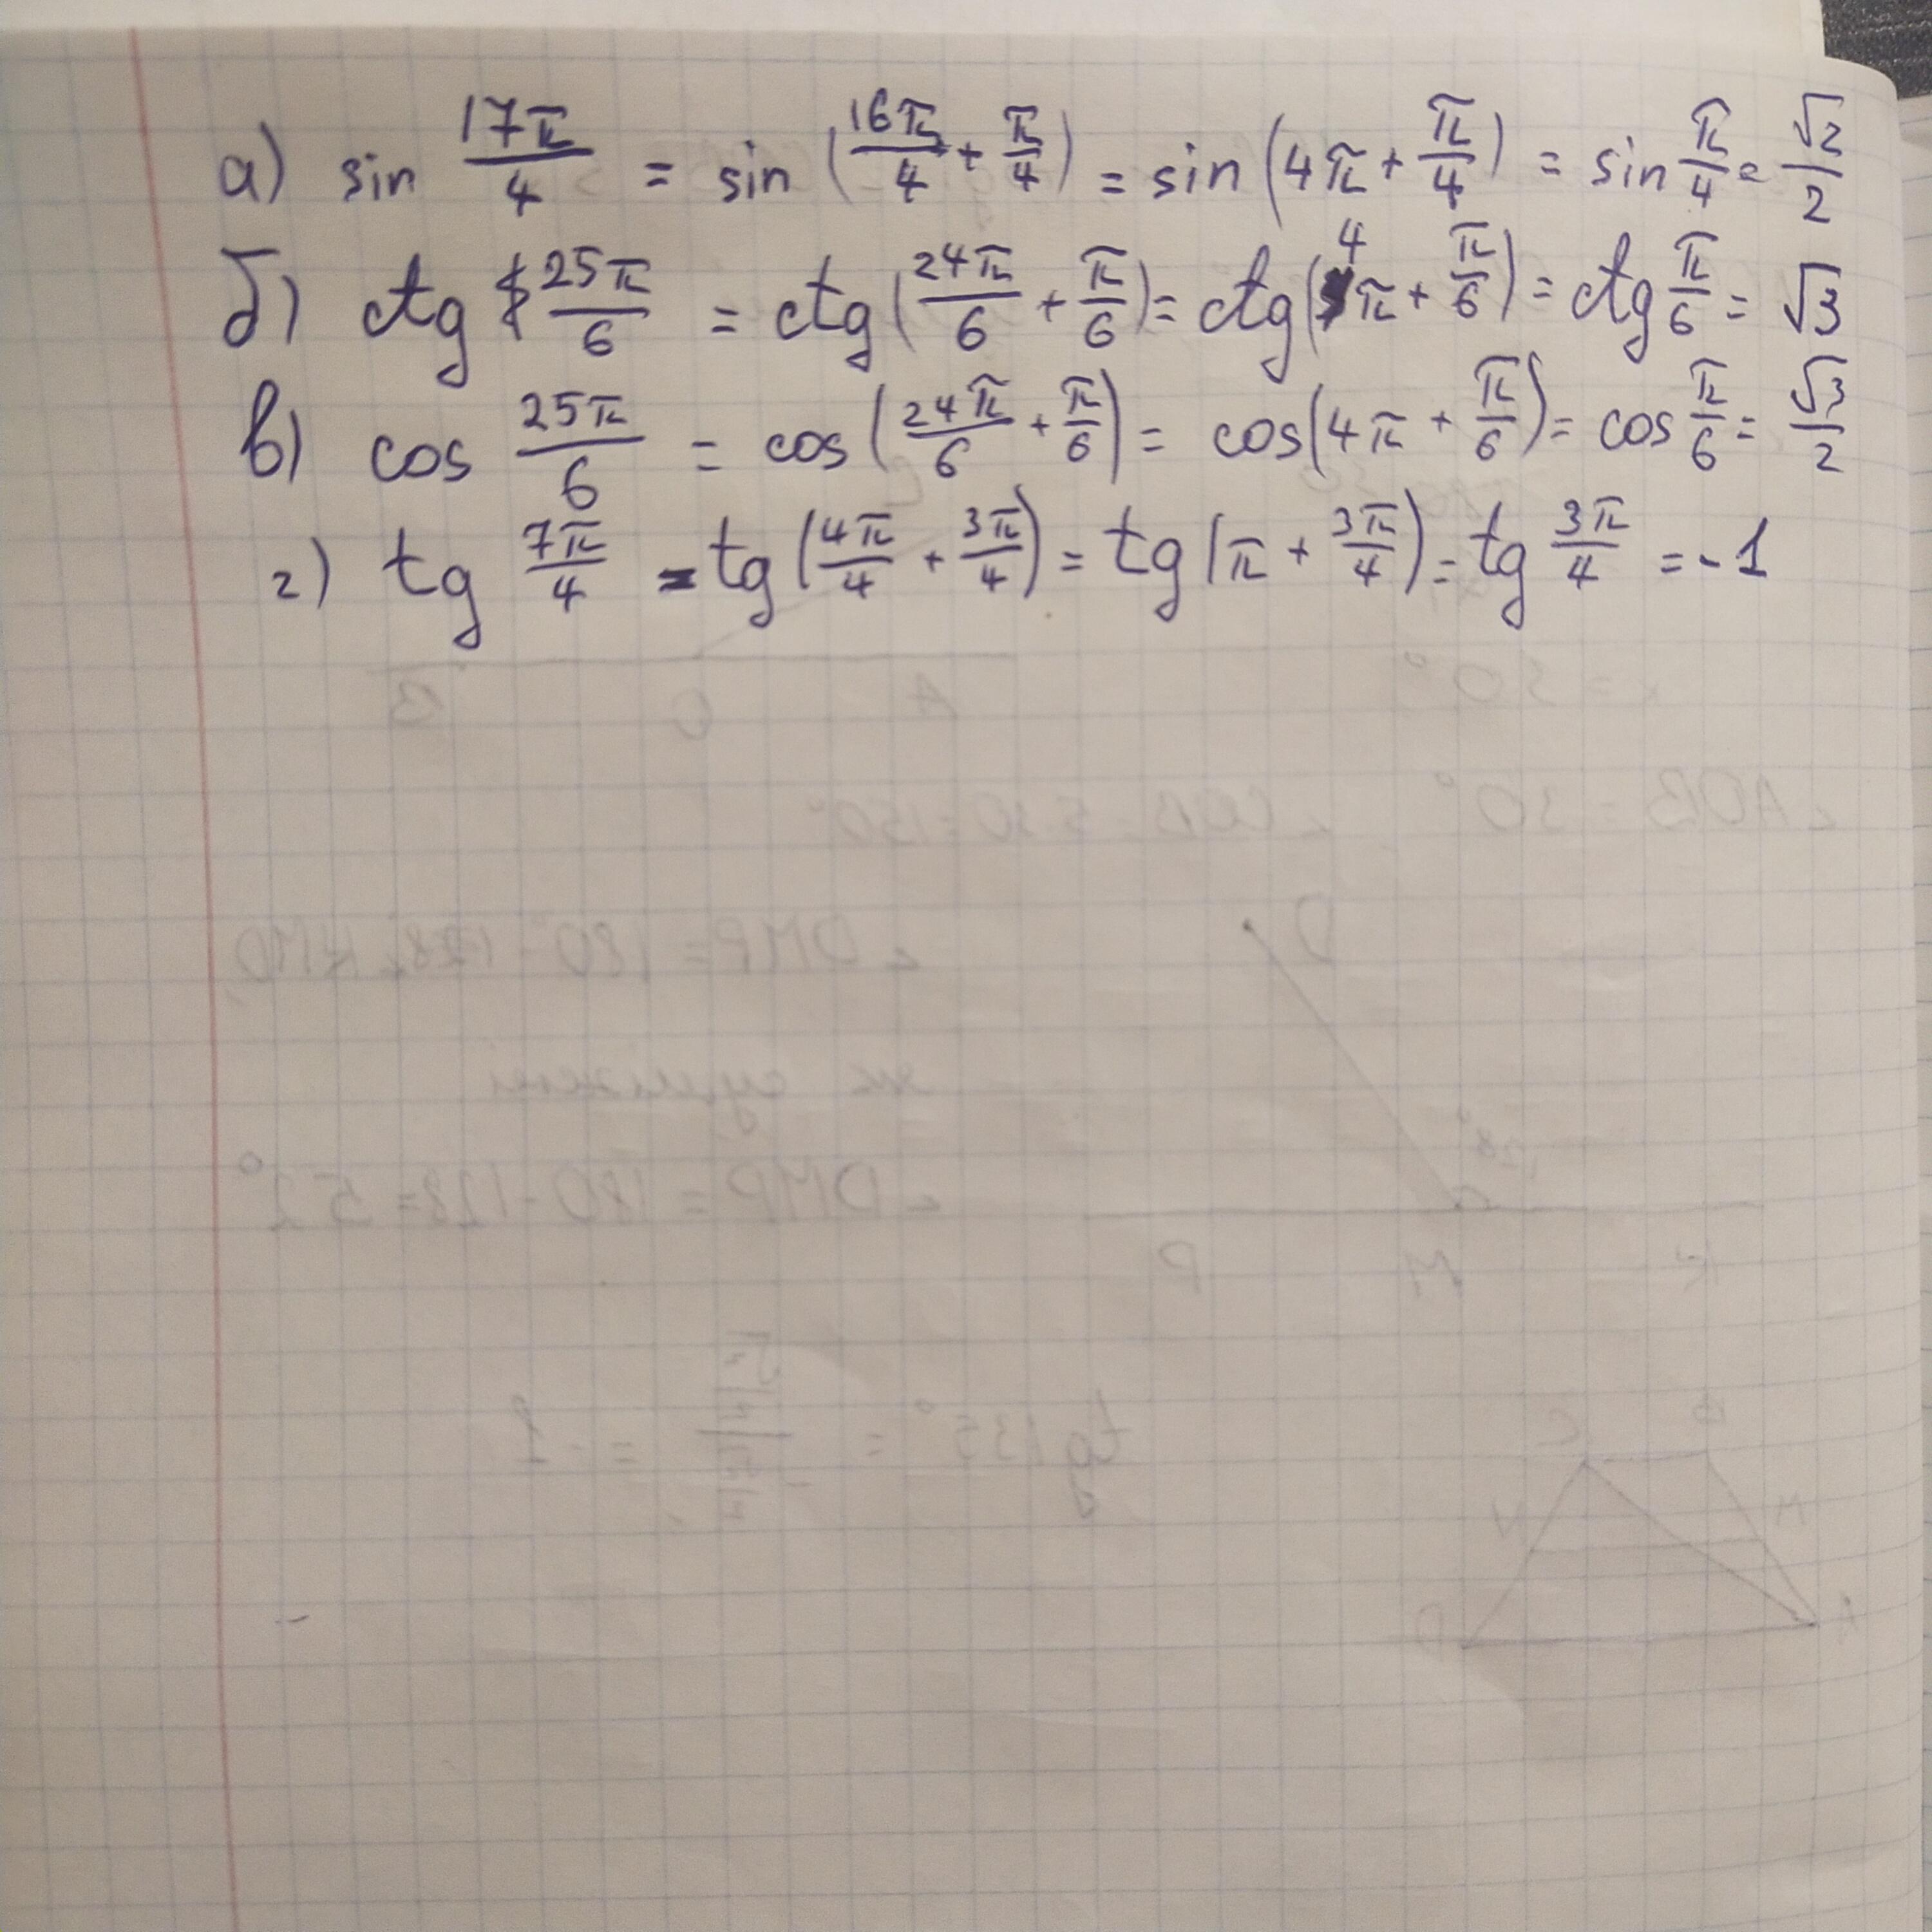 а) sin 17π/4 = sin (16π/4 + π/4) = sin (4π + π/4) = sin π/4 = √2/2
б) ctg 25π/6 = ctg (24π/6 + π/6) = ctg (4π + π/6) = ctg π/6 = √3
в) cos 25π/6 = cos (24π/6 + π/6) = cos (4π + π/6) = cos π/6 = √3/2
г) tg 7π/4 = tg (4π/4 + 3π/4) = tg (π + 3π/4) = tg 3π/4 = -1